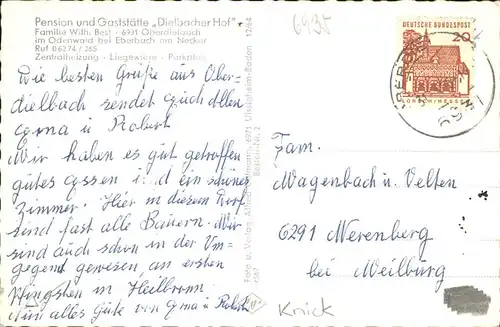 Pension und Gaststätte „Dielbacher Hof"
Familie Wilh. Best - 6931 Oberdielbach
im Odenwald bei Eberbach am Neckar
Ruf 06274 / 265
Zentralheizung - Liegewiese - Parkplatz
12/64
6935
DEUTSCHE BUNDESPOST
20
LORSCH/HESSEN
Die besten Grüße aus Ober-
dielbach sendet Euch allen
Oma u Robert
Wir haben es gut getroffen
gutes Essen und ein schönes
Zimmer. Hier in diesem Dorf
send fast alle Bauern. Wir
sind auch schon in der Um-
gegend gewesen, an ersten
Pfingsten in Heilbronn
Nun alles Gute von Oma u Robert
Foto u. Verlag
6971 Uissigheim-Baden
Bestell-Nr. 2
Fam.
Wagenbach u. Velten
6291 Merenberg
bei Weilburg
Knick